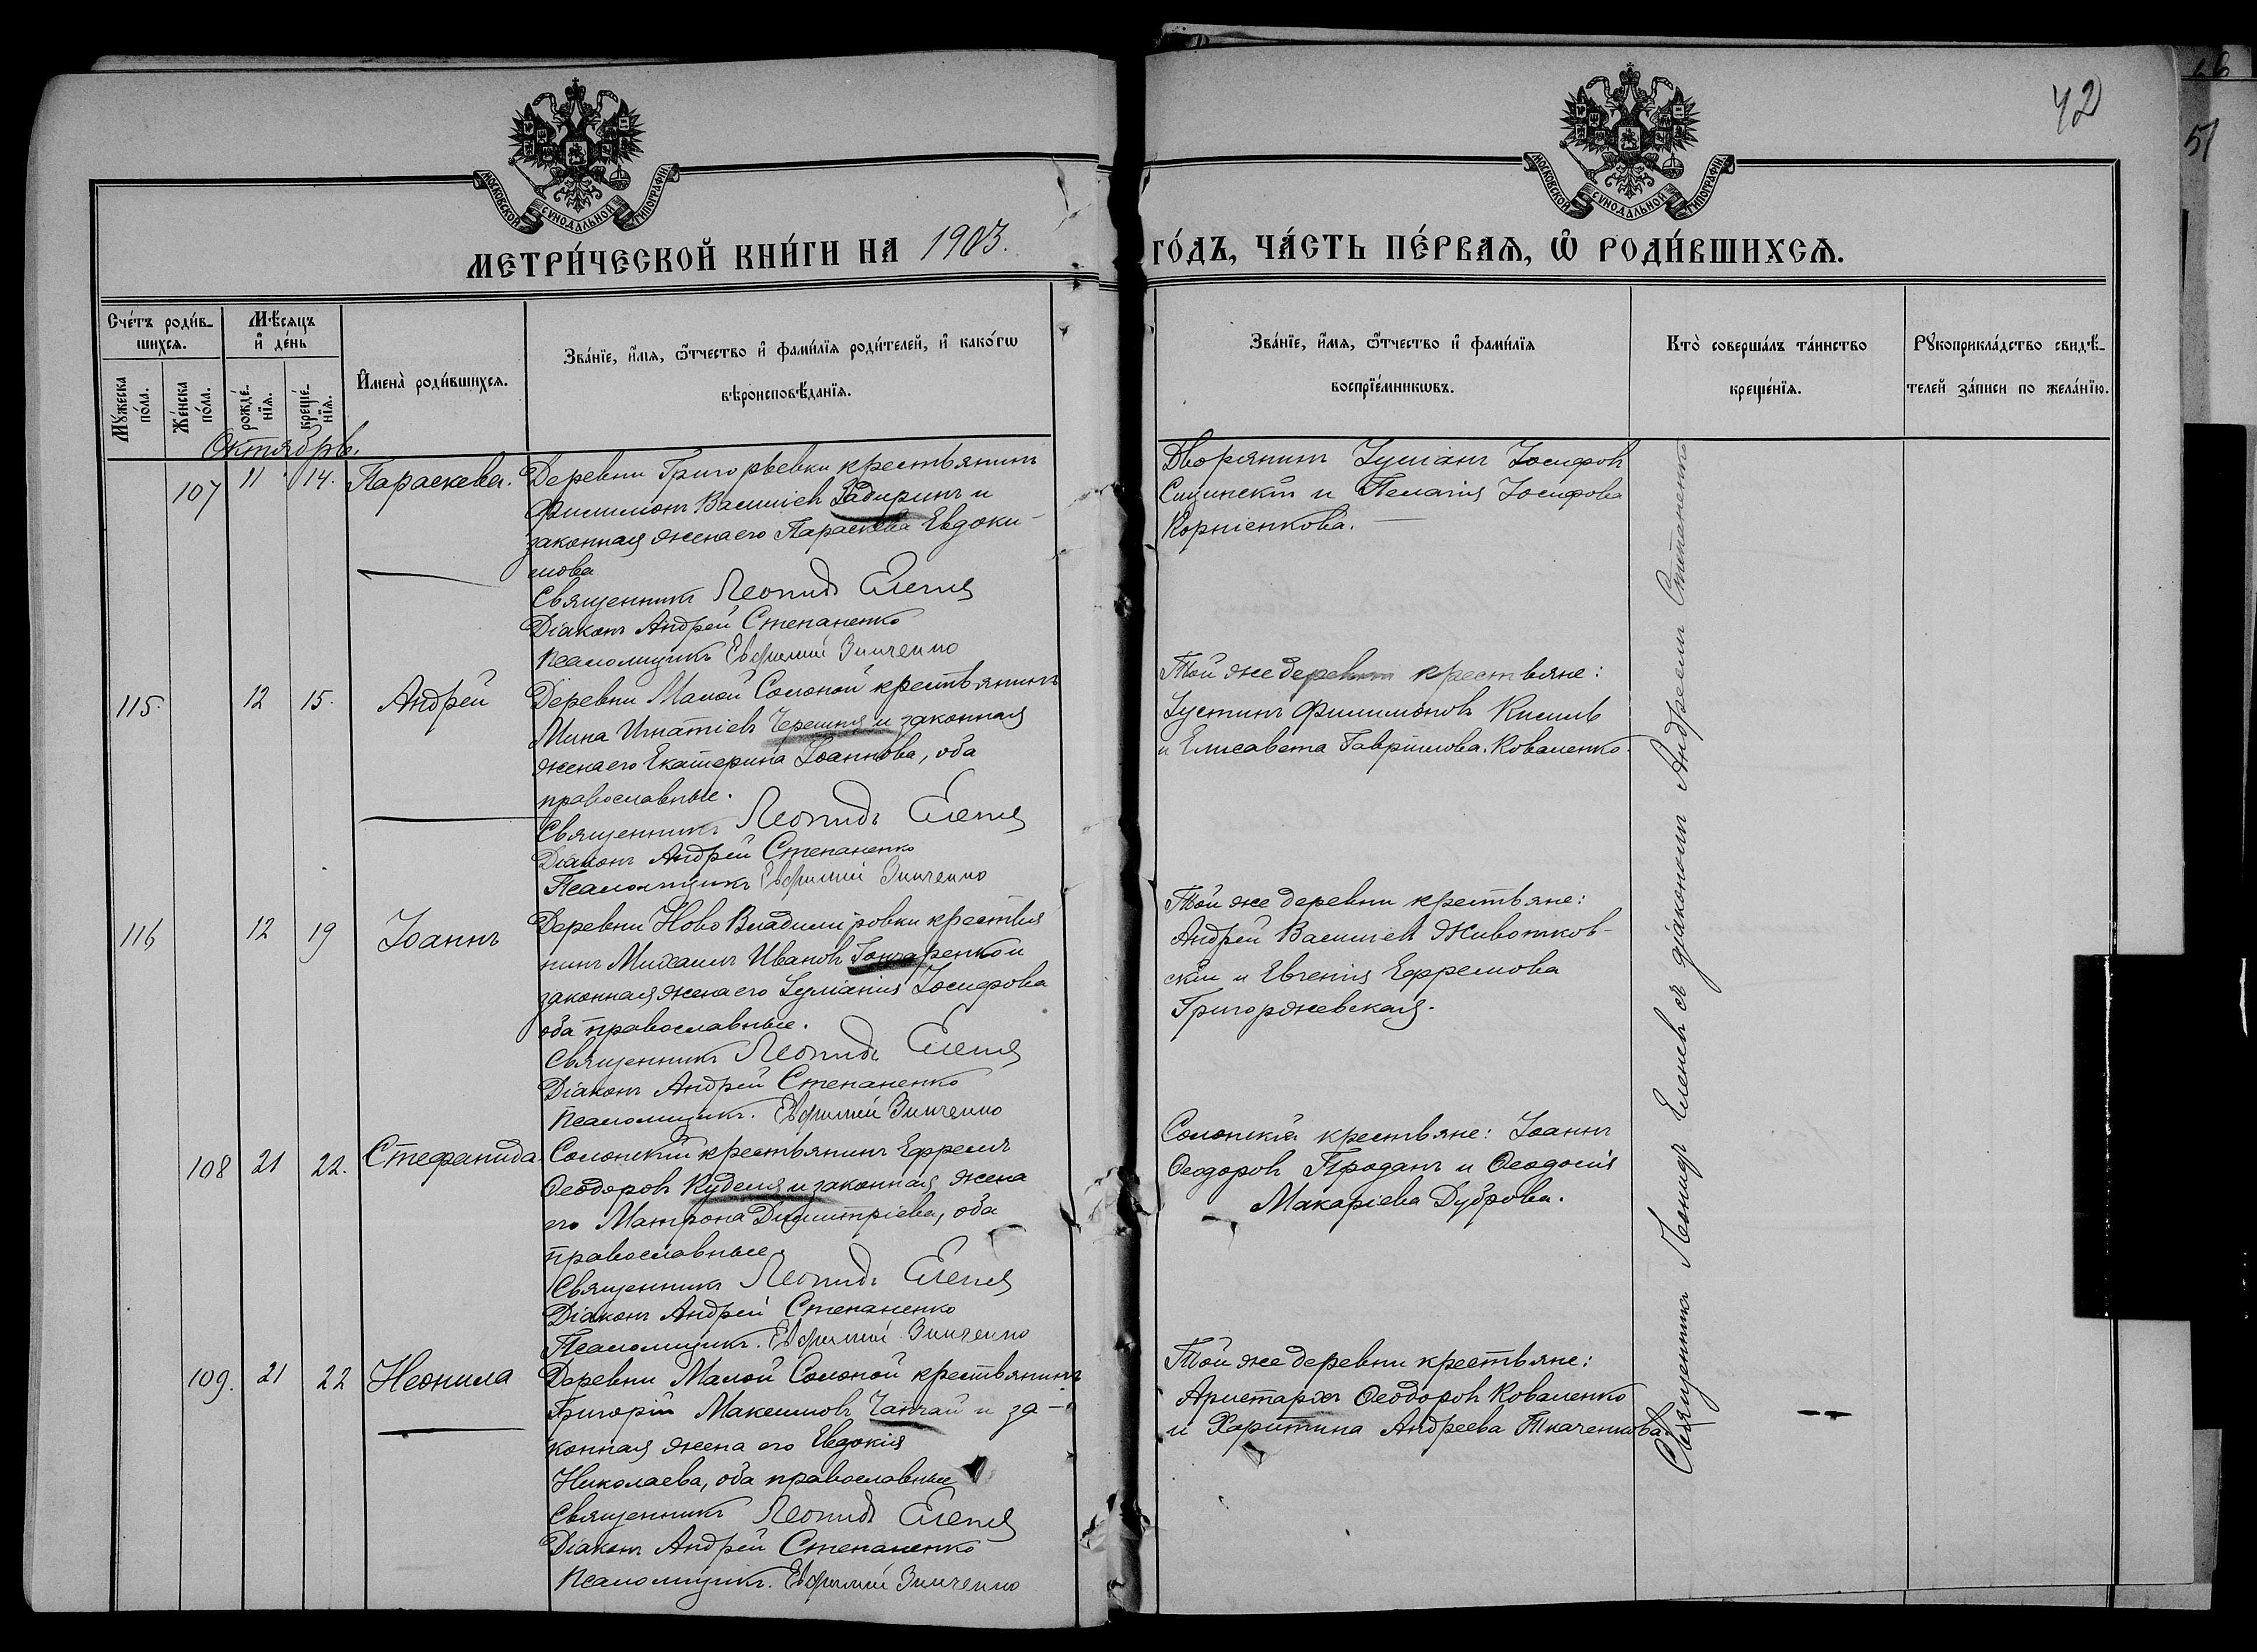 42
51
МОСКОВСКОЙ СѴНОДАЛЬНОЙ ТИПОГРАФІИ
МОСКОВСКОЙ СѴНОДАЛЬНОЙ ТИПОГРАФІИ
МЕТРИ́ЧЕСКОЙ КНИ́ГИ НА 1903.
ГО́ДЪ, ЧА́СТЬ ПЕ́РВАѦ, Ѽ РОДИ́ВШИХСѦ.
Сче́тъ роди́в-
шихсѧ.
Мꙋ́жеска по́ла.
Же́нска по́ла.
Мѣ́сѧцъ и҆ де́нь
рожде́-
нїѧ.
креще́-
нїѧ.
И҆мена̀ роди́вшихсѧ.
Зва́нїе, и҆́мѧ, ѻ҆́тчество и҆ фами́лїѧ роди́телей, и҆ како́гѡ
вѣроисповѣ́данїѧ.
Зва́нїе, и҆́мѧ, ѻ҆́тчество и҆ фами́лїѧ
воспрїе́мникѡвъ.
Кто̀ соверша́лъ та́инство
креще́нїѧ.
Рꙋкоприкла́дство свидѣ́-
телей за́писи по жела́нїю.
Октябрь.
107 11 14. Параскева.
Деревни Григорьевки крестьянинъ
Филимонъ Василіевъ Задиринъ и
законная жена его Параскева Евдоки-
мова
Священникъ Леонидъ Еленевъ
Діаконъ Андрей Степаненко
Псаломщикъ Евфимій Зинченко
Дворянинъ Іуліанъ Іосифовъ
Сицинскій и Пелагія Іосифова
Корніенкова.
115. 12 15. Андрей
Деревни Малой Солоной крестьянинъ
Мина Игнатіевъ Черешня и законная
жена его Екатерина Іоаннова, оба
православные.
Священникъ Леонидъ Еленевъ
Діаконъ Андрей Степаненко
Псаломщикъ Евфимій Зинченко
Той же деревни крестьяне:
Іустинъ Филимоновъ Кисиль
и Елисавета Гавріилова Коваленко.
116 12 19 Іоаннъ
Деревни Ново Владиміровки крестья
нинъ Михаилъ Ивановъ Гончаренко и
законная жена его Іуліанія Іосифова
оба православные.
Священникъ Леонидъ Еленевъ
Діаконъ Андрей Степаненко
Псаломщикъ. Евфимій Зинченко
Той же деревни крестьяне:
Андрей Василіевъ Животков-
скій и Евгенія Ефремова
Григоржевская.
108 21 22. Стефанида
Солонскій крестьянинъ Ефремъ
Ѳеодоровъ Куделя и законная жена
его Матрона Димитріева, оба
православные.
Священникъ Леонидъ Еленевъ
Діаконъ Андрей Степаненко
Псаломщикъ. Евфимій Зинченко
Солонскія крестьяне: Іоаннъ
Ѳеодоровъ Проданъ и Ѳеодосія
Макаріева Дуброва.
109. 21 22 Неонила
Деревни Малой Солоной крестьянинъ
Григорій Максимовъ Чапчай и за-
конная жена его Евдокія
Николаева, оба православные
Священникъ Леонидъ Еленевъ
Діаконъ Андрей Степаненко
Псаломщикъ. Евфимій Зинченко
Той же деревни крестьяне:
Аристархъ Ѳеодоровъ Коваленко
и Харитина Андреева Ткаченкова.
Священникъ Леонидъ Еленевъ съ діакономъ Андреемъ Степаненко